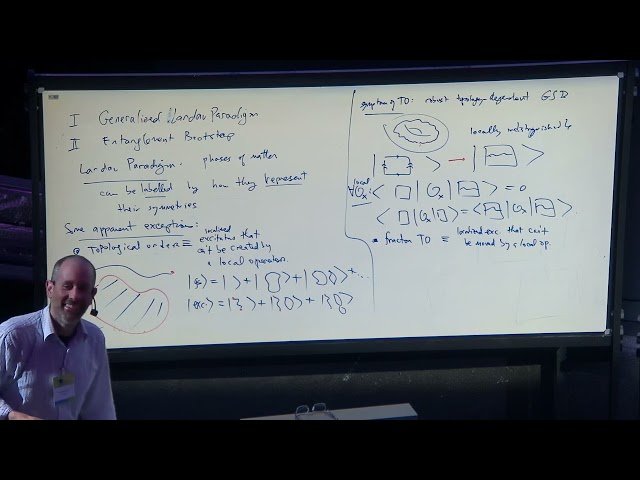 I Generalized Landau Paradigm
II Entanglement Bootstrap
Landau Paradigm: phases of matter
can be labelled by how they represent
their symmetries
Some apparent exceptions:
• Topological order ≡ localized
excitations that
can't be created by
a local operator.
|gs> = | > + |0> + |00> + ...
|exc> =
symptom of TO: robust topology-dependent GSD
locally indistinguishable
∀ local
O_x : < □ | O_x | > = 0
< □ | O_x | □ > = < | O_x | >
• fracton TO ≡ localized exc. that can't
be moved by a local op.